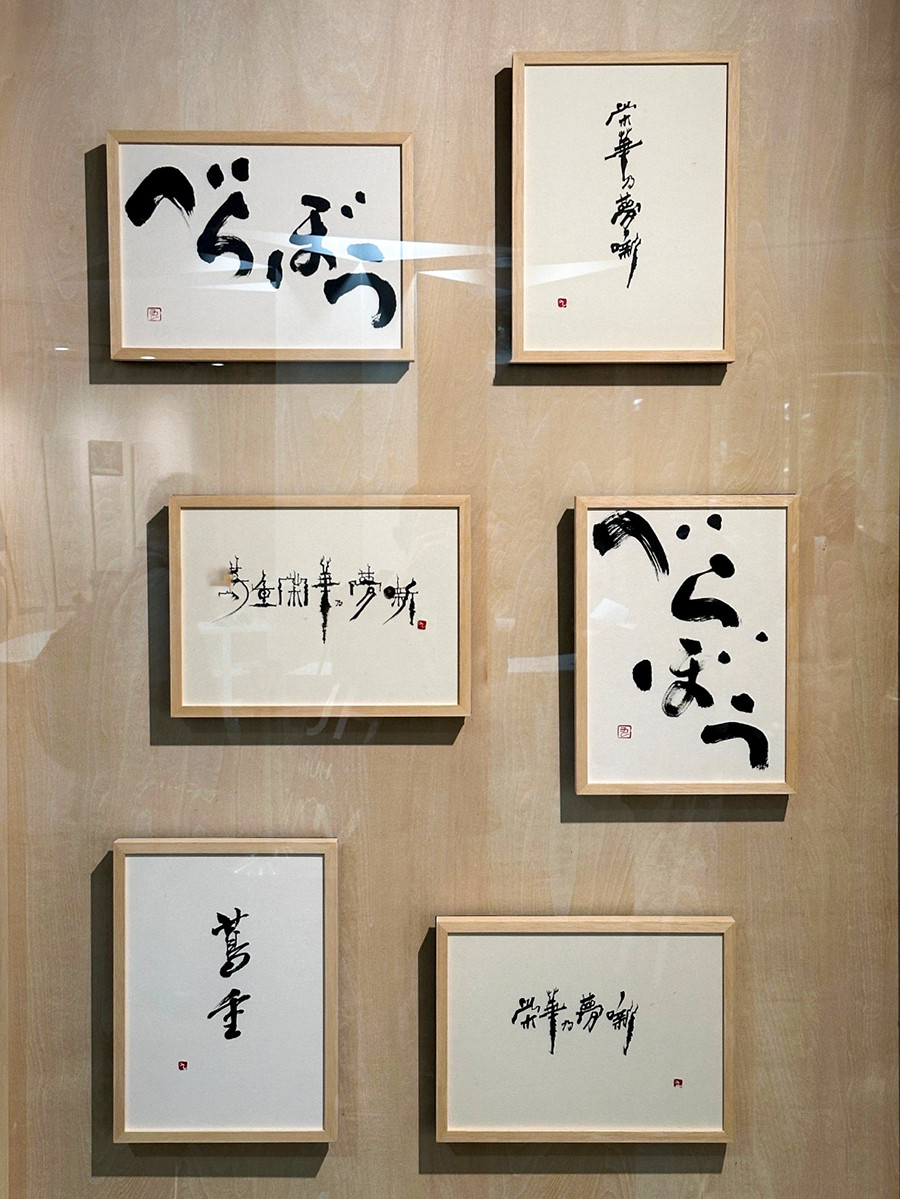 べらぼう
榮華乃夢噺
蔦重榮華乃夢噺
べらぼう
蔦重
榮華乃夢噺